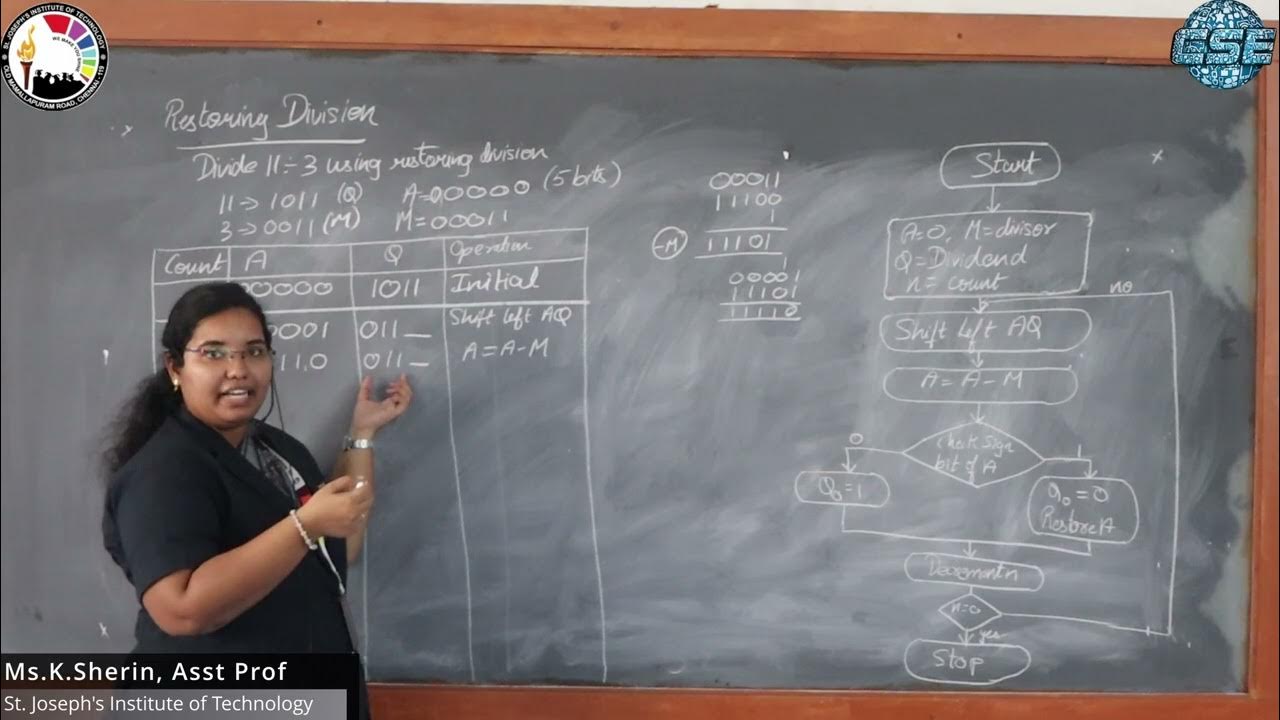 ST. JOSEPH'S INSTITUTE OF TECHNOLOGY
OLD MAMALLAPURAM ROAD, CHENNAI - 119
CSE
Restoring Division
Divide 11÷3 using restoring division
11 → 1011 (Q) A=00000 (5 bits)
3 → 0011 (M) M=00011
Count A Q Operation
00000 1011 Initial
0001 011_ Shift left AQ
110 011_ A=A-M
00011
11100
1
-M 11101
1
00001
11101
11110
Start
A=0, M=divisor
Q=Dividend
n=count
no
Shift left AQ
A=A-M
Check sign
bit of A
0
1
Q₀=1
Q₀=0
Restore A
Decrement n
n=0
yes
Stop
Ms.K.Sherin, Asst Prof
St. Joseph's Institute of Technology